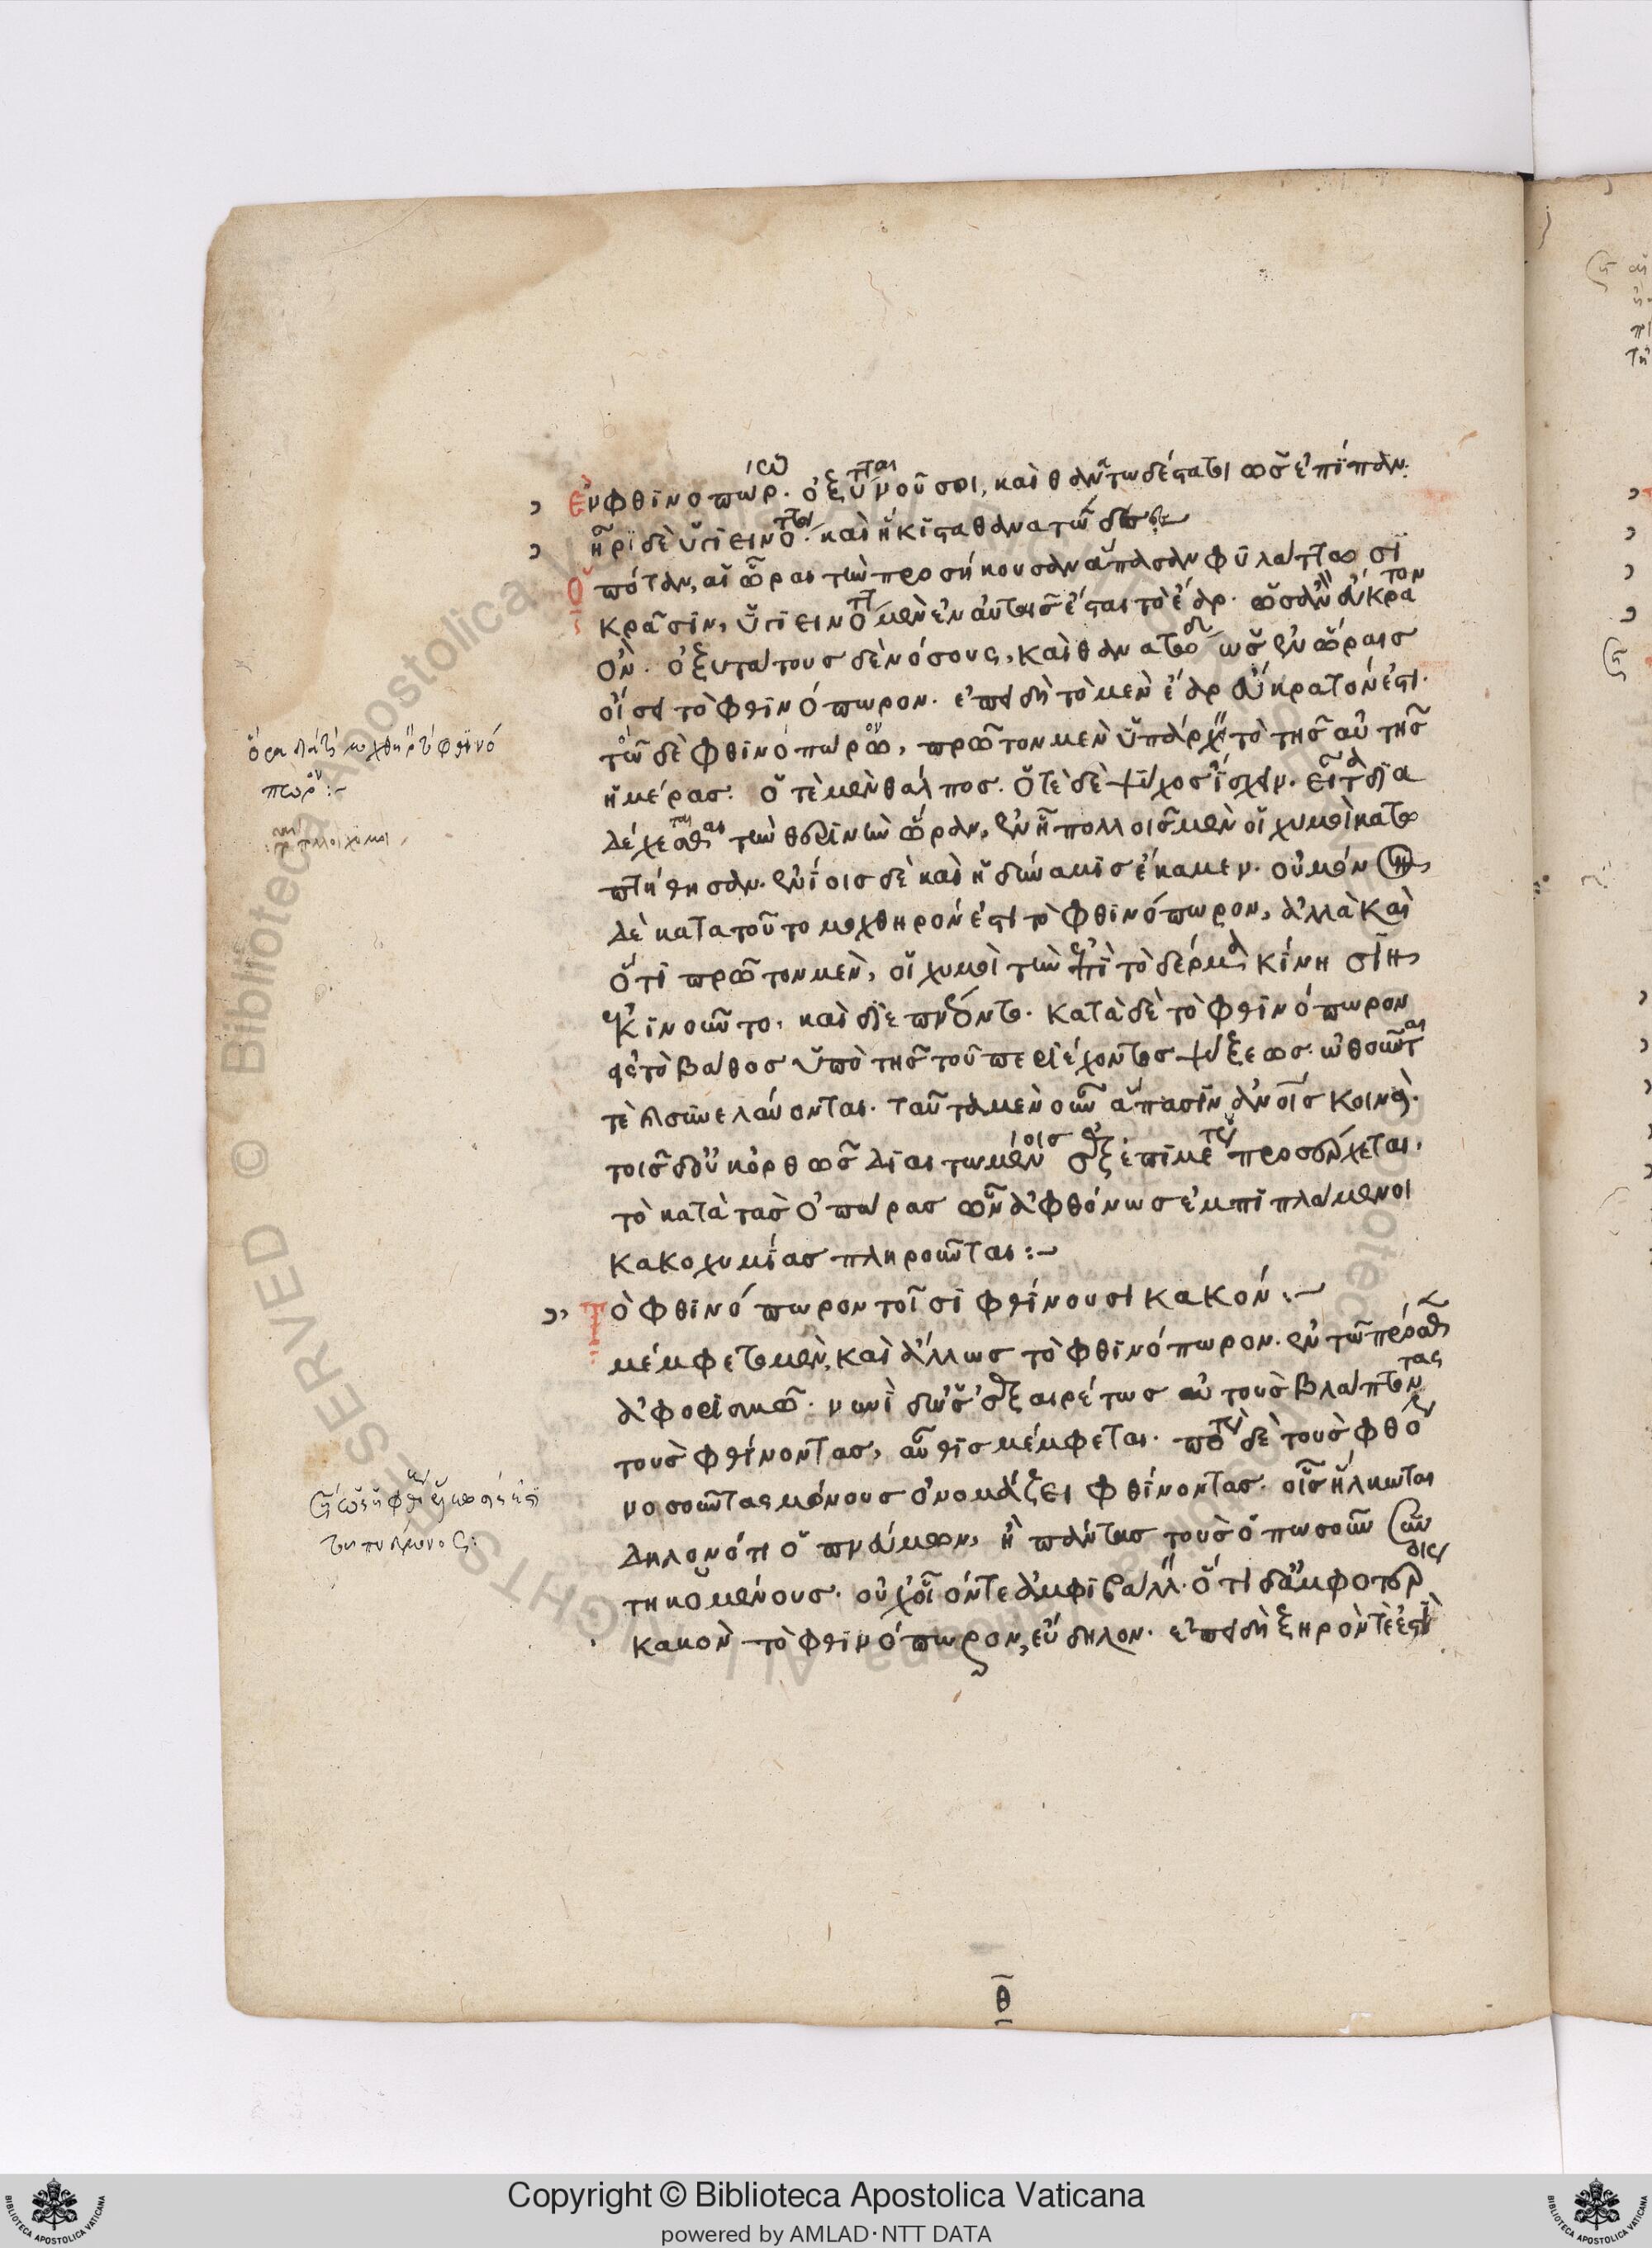 Ἐν φθινοπώρω ὀξύταται νοῦσοι, καὶ θανατωδέσταται ὡς ἐπίπαν.
ἦρι δὲ ὑγιεινότατον. καὶ ἥκιστα θανατῶδες :~
Ὁπόταν, αἱ ὧραι τὴν προσήκουσαν ἅπασαν φυλάττωσι
κρᾶσιν, ὑγιεινότατον μὲν ἐν αὐταῖς ἔσται τὸ ἔαρ. ὡσὰν εὔκρατον
ὄν. ὀξυτάτους δὲ νόσους, καὶ θανατώδεις ὡς ἐν ὥραις
οἴσει τὸ φθινόπωρον. ἐπειδὴ τὸ μὲν ἔαρ εὔκρατόν ἐστι.
τῶ δὲ φθινοπώρω, πρῶτον μὲν ὑπάρχει τὸ τῆς αὐτῆς
ἡμέρας. ὁτὲ μὲν θάλπος. ὁτὲ δὲ ψύχος ἴσχειν. εἶτα δια
δέχεσθαι τὴν θερινὴν ὥραν, ἐν ἧ πολλοῖς μὲν οἱ χυμοὶ κατω
πτήθησαν. ἐνίοις δὲ καὶ ἡ δύναμις ἔκαμεν. οὐ μόνον
δὲ κατὰ τοῦτο μοχθηρόν ἐστι τὸ φθινόπωρον, ἀλλὰ καὶ
ὅτι πρῶτον μὲν, οἱ χυμοὶ τὴν ἐπὶ τὸ δέρμα κίνησιν
ἐκινοῦντο, καὶ διεπνέοντο. κατὰ δὲ τὸ φθινόπωρον
εἰς τὸ βάθος ὑπὸ τῆς τοῦ περιέχοντος ψύξεως ὠθοῦνται
τὲ καὶ συνελαύνονται. ταῦτα μὲν οὖν ἅπασιν ἀνοις κοινά.
τοῖς δ' οὐκ ὀρθῶς διαιτωμένοις ἐξ ἐπιμέτρου προσέρχεται.
τὸ κατὰ τὰς ὀπώρας ὧν ἀφθόνως ἐμπιπλάμενοι
κακοχυμίας πληροῦνται :~
Τὸ φθινόπωρον τοῖσι φθίνουσι κακόν :~
μέμφεται μὲν, καὶ ἄλλως τὸ φθινόπωρον. ἐν τῶ πρὸ
ἀφορισμῶ. νυνὶ δ' ὡς ἐξαιρέτως αὐτοὺς βλάπτον
τοὺς φθίνοντας, αὖθις μέμφεται. πότερον δὲ τοὺς φθό
νοσοῦντας μόνους ὀνομάζει φθίνοντας. οἷς ἥλκωται
δηλονότι ὁ πνεύμων, ἢ πάντας τοὺς ὁπωσοῦν
τηκομένους. οὐχ οἷόν τε ἀμφιβάλλειν. ὅτι δ' ἀμφοτέροις
κακὸν τὸ φθινόπωρον, εὔδηλον. ἐπειδὴ ξηρόν τέ ἐστι
ὅρα διὰ τί μοχθηρὸν τὸ φθινό
πωρον :~
θ
Copyright © Biblioteca Apostolica Vaticana
powered by AMLAD·NTT DATA